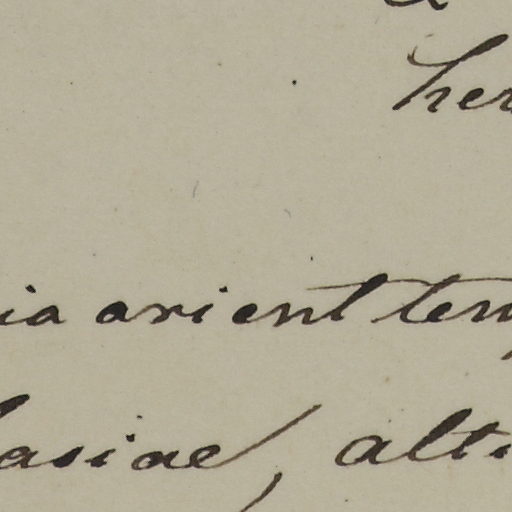 her
ia orient tem
asiae, alti